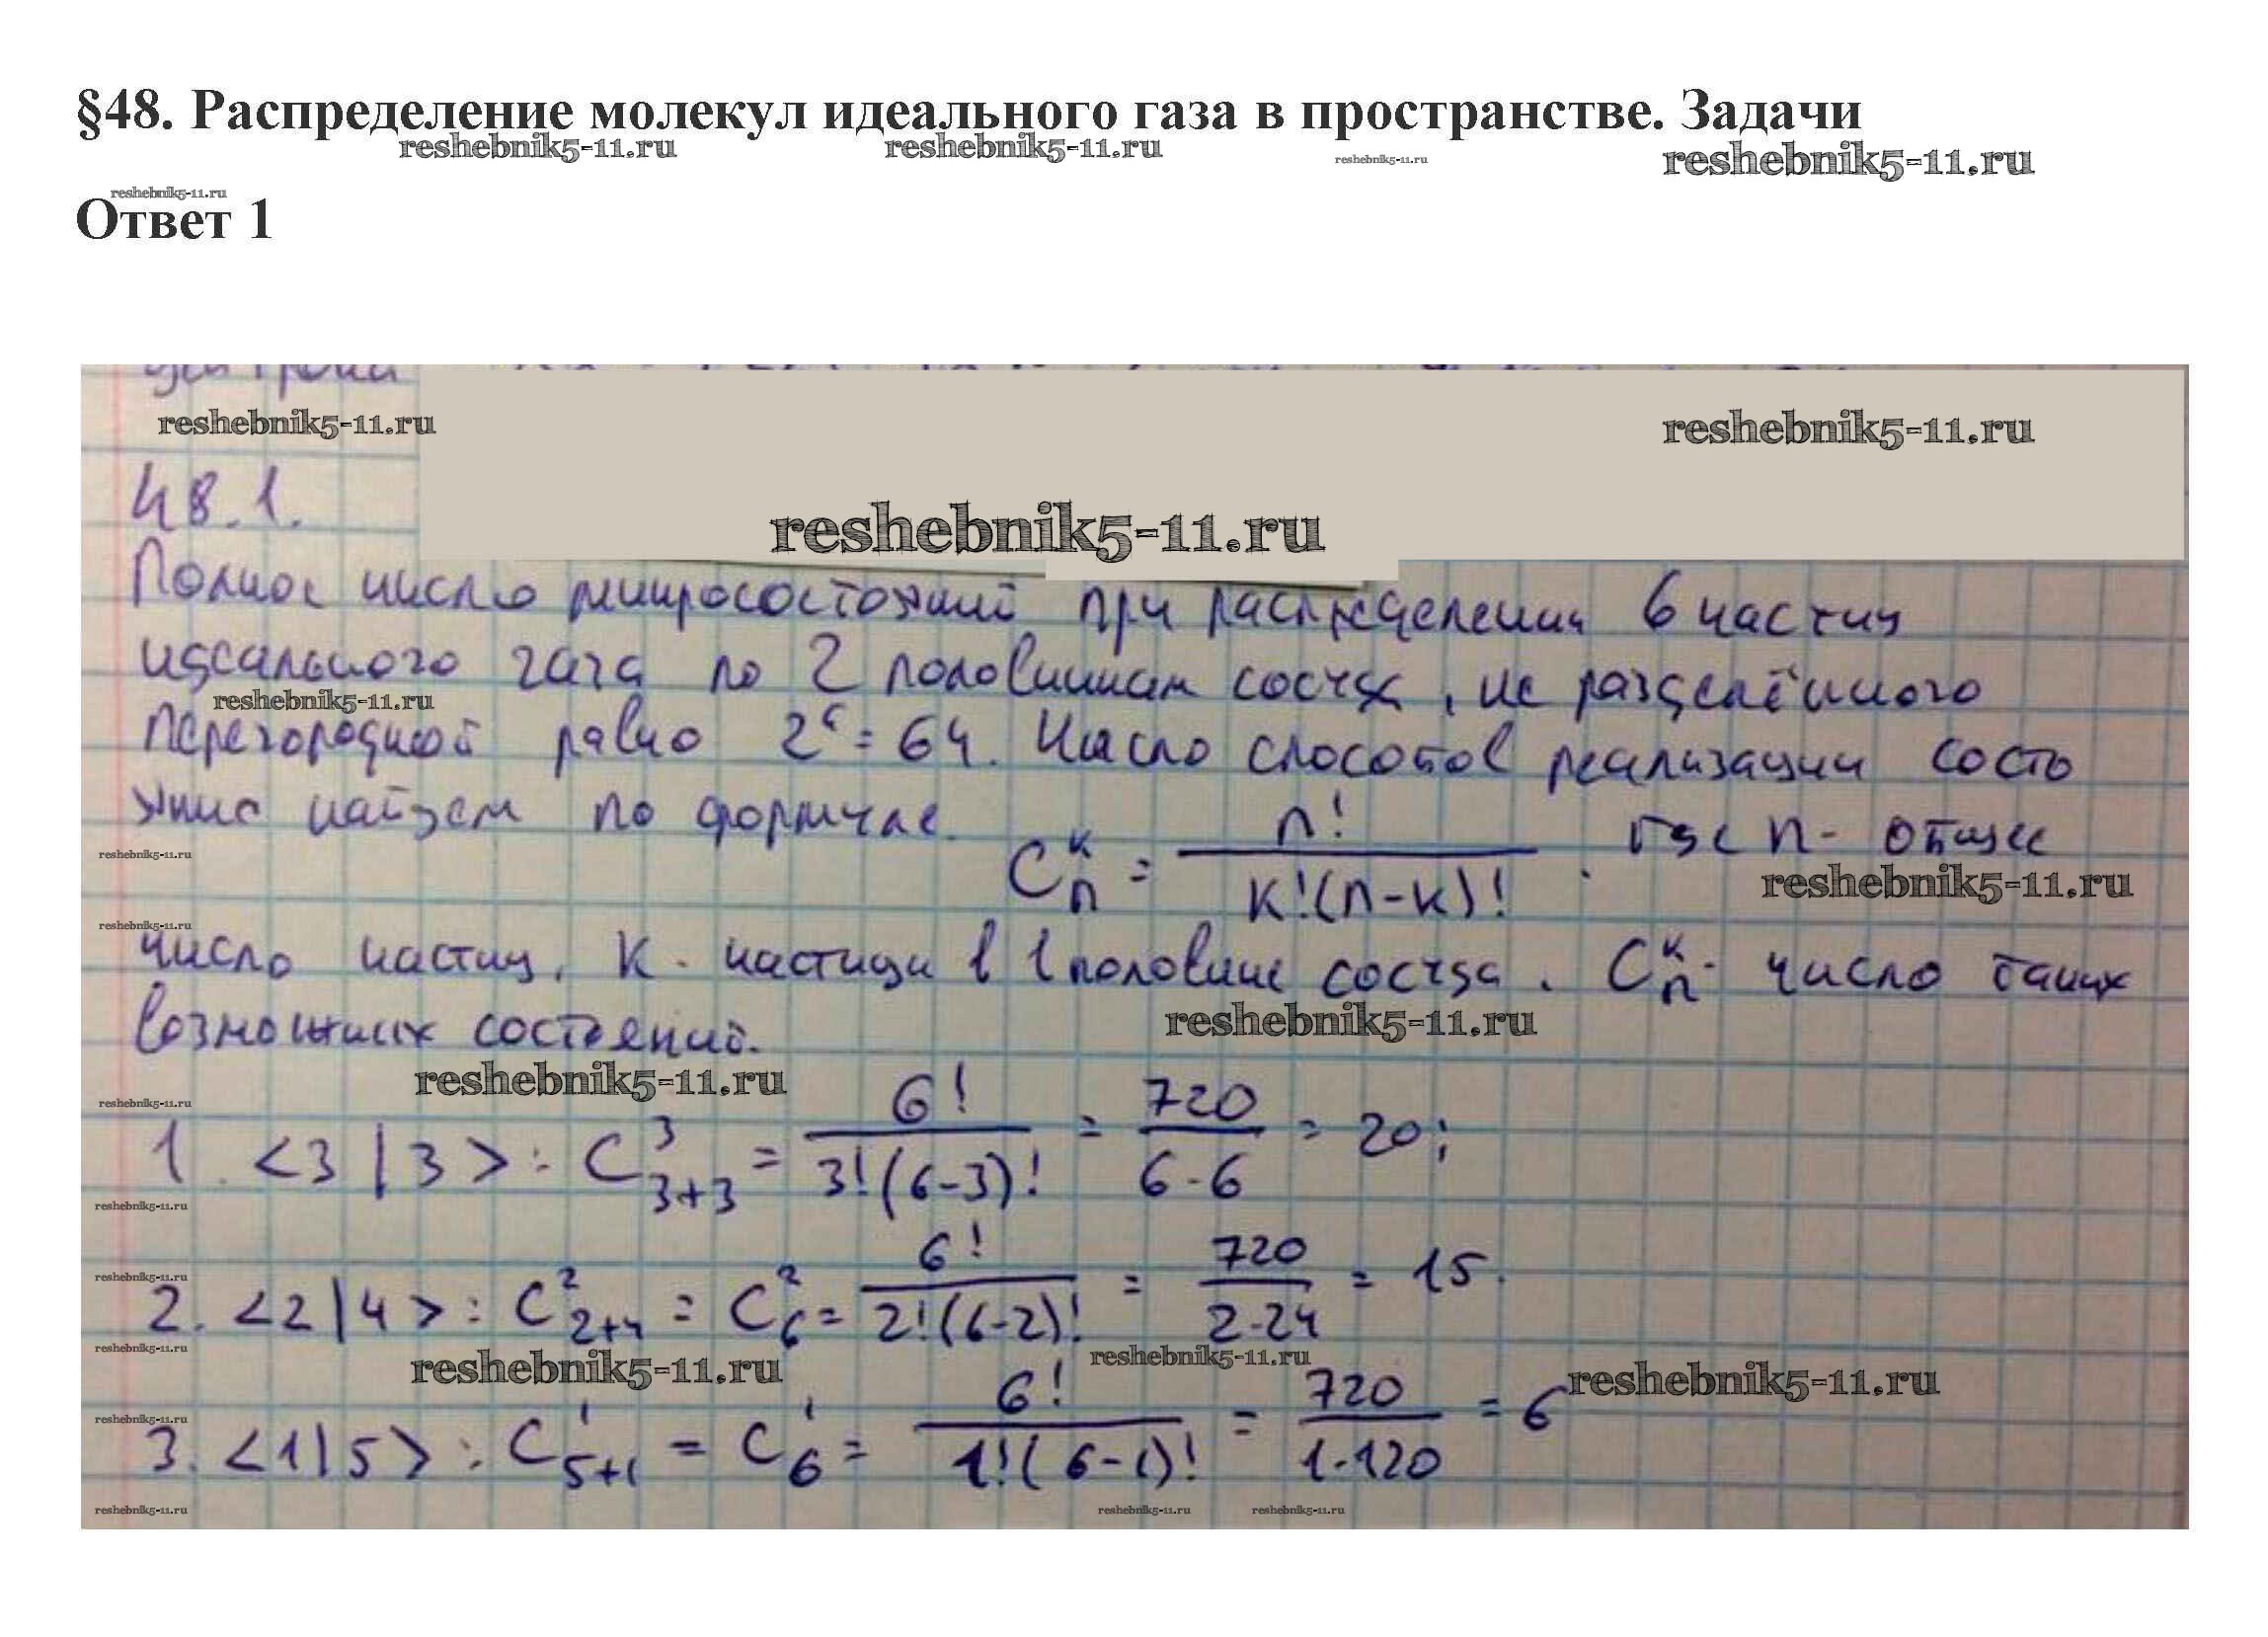 §48. Распределение молекул идеального газа в пространстве. Задачи
reshebnik5-11.ru reshebnik5-11.ru reshebnik5-11.ru reshebnik5-11.ru
reshebnik5-11.ru
Ответ 1
reshebnik5-11.ru reshebnik5-11.ru
48.1.
reshebnik5-11.ru
Полное число микросостояний при распределении 6 частиц
идеального газа по 2 половинам сосуда, не разделённого
reshebnik5-11.ru
перегородкой равно 2⁶ = 64. Число способов реализации состо
яние найдем по формуле. Cₙᵏ = n! / k!(n-k)! . где n - общее
reshebnik5-11.ru reshebnik5-11.ru
reshebnik5-11.ru
число частиц, k - частицы в 1 половине сосуда. Cₙᵏ - число таких
reshebnik5-11.ru
возможных состояний.
reshebnik5-11.ru
reshebnik5-11.ru
1. <3|3> : C³₃₊₃ = 6! / 3!(6-3)! = 720 / 6·6 = 20;
reshebnik5-11.ru
reshebnik5-11.ru
2. <2|4> : C²₂₊₄ = C²₆ = 6! / 2!(6-2)! = 720 / 2·24 = 15.
reshebnik5-11.ru reshebnik5-11.ru reshebnik5-11.ru reshebnik5-11.ru
reshebnik5-11.ru
3. <1|5> : C¹₅₊₁ = C¹₆ = 6! / 1!(6-1)! = 720 / 1·120 = 6
reshebnik5-11.ru reshebnik5-11.ru reshebnik5-11.ru